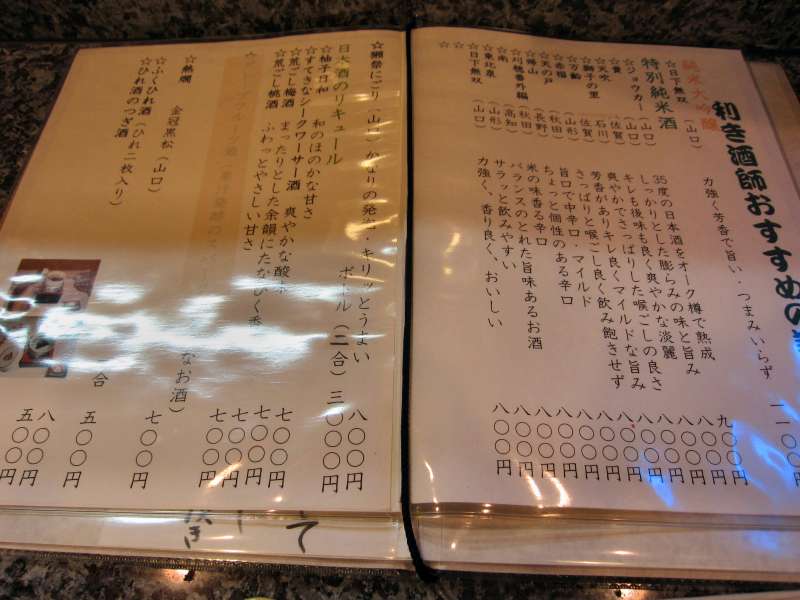 利き酒師おすすめの
純米大吟醸
☆日下無双(山口) 力強く芳香で旨い・つまみいらず 一一〇〇円
特別純米酒
☆ジョウガー(山口) 35度の日本酒をオーク樽で熟成 九〇〇円
☆貴(山口) しっかりとした膨らみの味と旨み 八〇〇円
☆天吹(佐賀) キレも後味も良く爽やかな淡麗 八〇〇円
☆獅子の里(石川) 爽やかでさっぱりした喉ごしの良さ 八〇〇円
☆万齢(佐賀) 芳香がありキレ良くマイルドな旨み 八〇〇円
(山形) さっぱりと喉ごし良く飲み飽きせず 八〇〇円
☆天の戸(秋田) 旨口で中辛口・マイルド 八〇〇円
(長野) ちょっと個性のある辛口 八〇〇円
☆刈穂番外編(秋田) 米の味香る辛口 八〇〇円
☆南(高知) バランスのとれた旨味あるお酒 八〇〇円
☆東北泉(山形) サラッと飲みやすい 八〇〇円
☆日下無双(山口) 力強く、香り良く、おいしい 八〇〇円
☆
☆
☆獺祭にごり(山口) かなりの発泡・キリッとうまい 八〇〇円
ボトル(二合) 三〇〇〇円
日本酒のリキュール
☆柚子日和 和のほのかな甘さ 七〇〇円
☆すてきなシークワーサー酒 爽やかな酸 七〇〇円
☆荒ごし梅酒 まったりとした余韻にたなびく香 七〇〇円
☆荒ごし桃酒 ふわっとやさしい甘さ 七〇〇円
なお酒) 七〇〇円
☆熱燗 金冠黒松(山口)
合 五〇〇円
☆ふぐひれ酒(ひれ二枚入り) 八〇〇円
ひれ酒のつぎ酒 五〇〇円